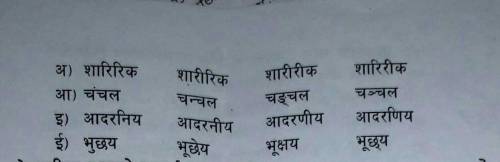 अ) शारिरिक शारीरिक शारीरीक शारिरीक
आ) चंचल चन्चल चङ्चल चञ्चल
इ) आदरनिय आदरनीय आदरणीय आदरणिय
ई) भुछय भूछेय भूक्षय भूछ्य